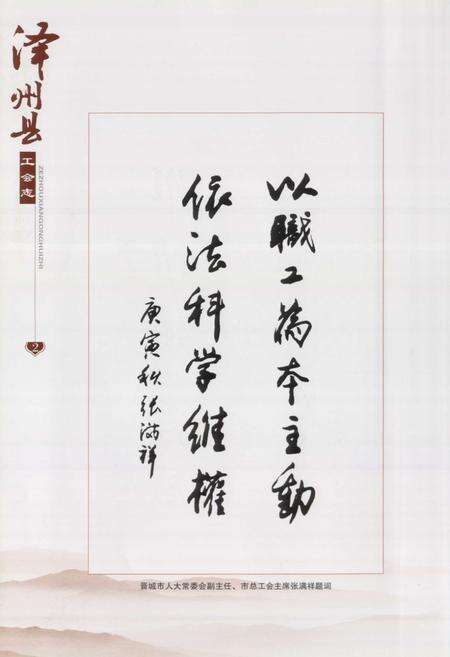 泽州县
工会志
ZEZHOUXIANGONGHUIZHI
2
以職工為本主動
依法科学維權
庚寅秋張滿祥
晋城市人大常委会副主任、市总工会主席张满祥题词